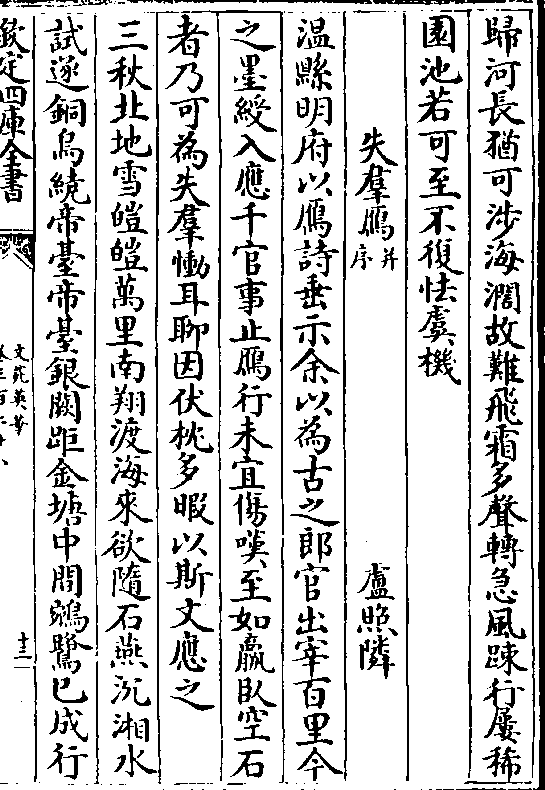 歸河長猶可涉海濶故難飛霜多聲轉急風踈行屢稀
園池若可至不復怯虞機
失羣鴈并序
盧照隣
温縣明府以鴈詩垂示余以為古之郎官出宰百里今
之墨綬入應千官事止鴈行未宜傷嘆至如羸臥空石
者乃可為失羣慟耳聊因伏枕多暇以斯文應之
三秋北地雪皚皚萬里南翔渡海來欲隨石燕沉湘水
試逐銅烏繞帝臺帝臺銀闕距金塘中間鵷鷺已成行
欽定四庫全書
文苑英華
十三